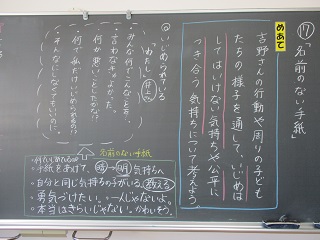 ⑰「名前のない手紙」
めあて
吉野さんの行動や周りの子ども
たちの様子を通して、いじめは
してはいけない気持ちや公平に
つき合う気持ちについて考えよう。
◎いじめられている
「わたし」
みんな何でこんなことを。
言わなきゃよかった。
何か悪いことしたかな!?
何で私だけいじめられるの!?
そんなにしなくてもいいのに。
名前のない手紙
手紙をあけて、暗→明 気持ちへ
・自分と同じ気持ちの子がいる。
・勇気づけたい。一人じゃないよ。
・本当はきらいじゃない。かわいそう。